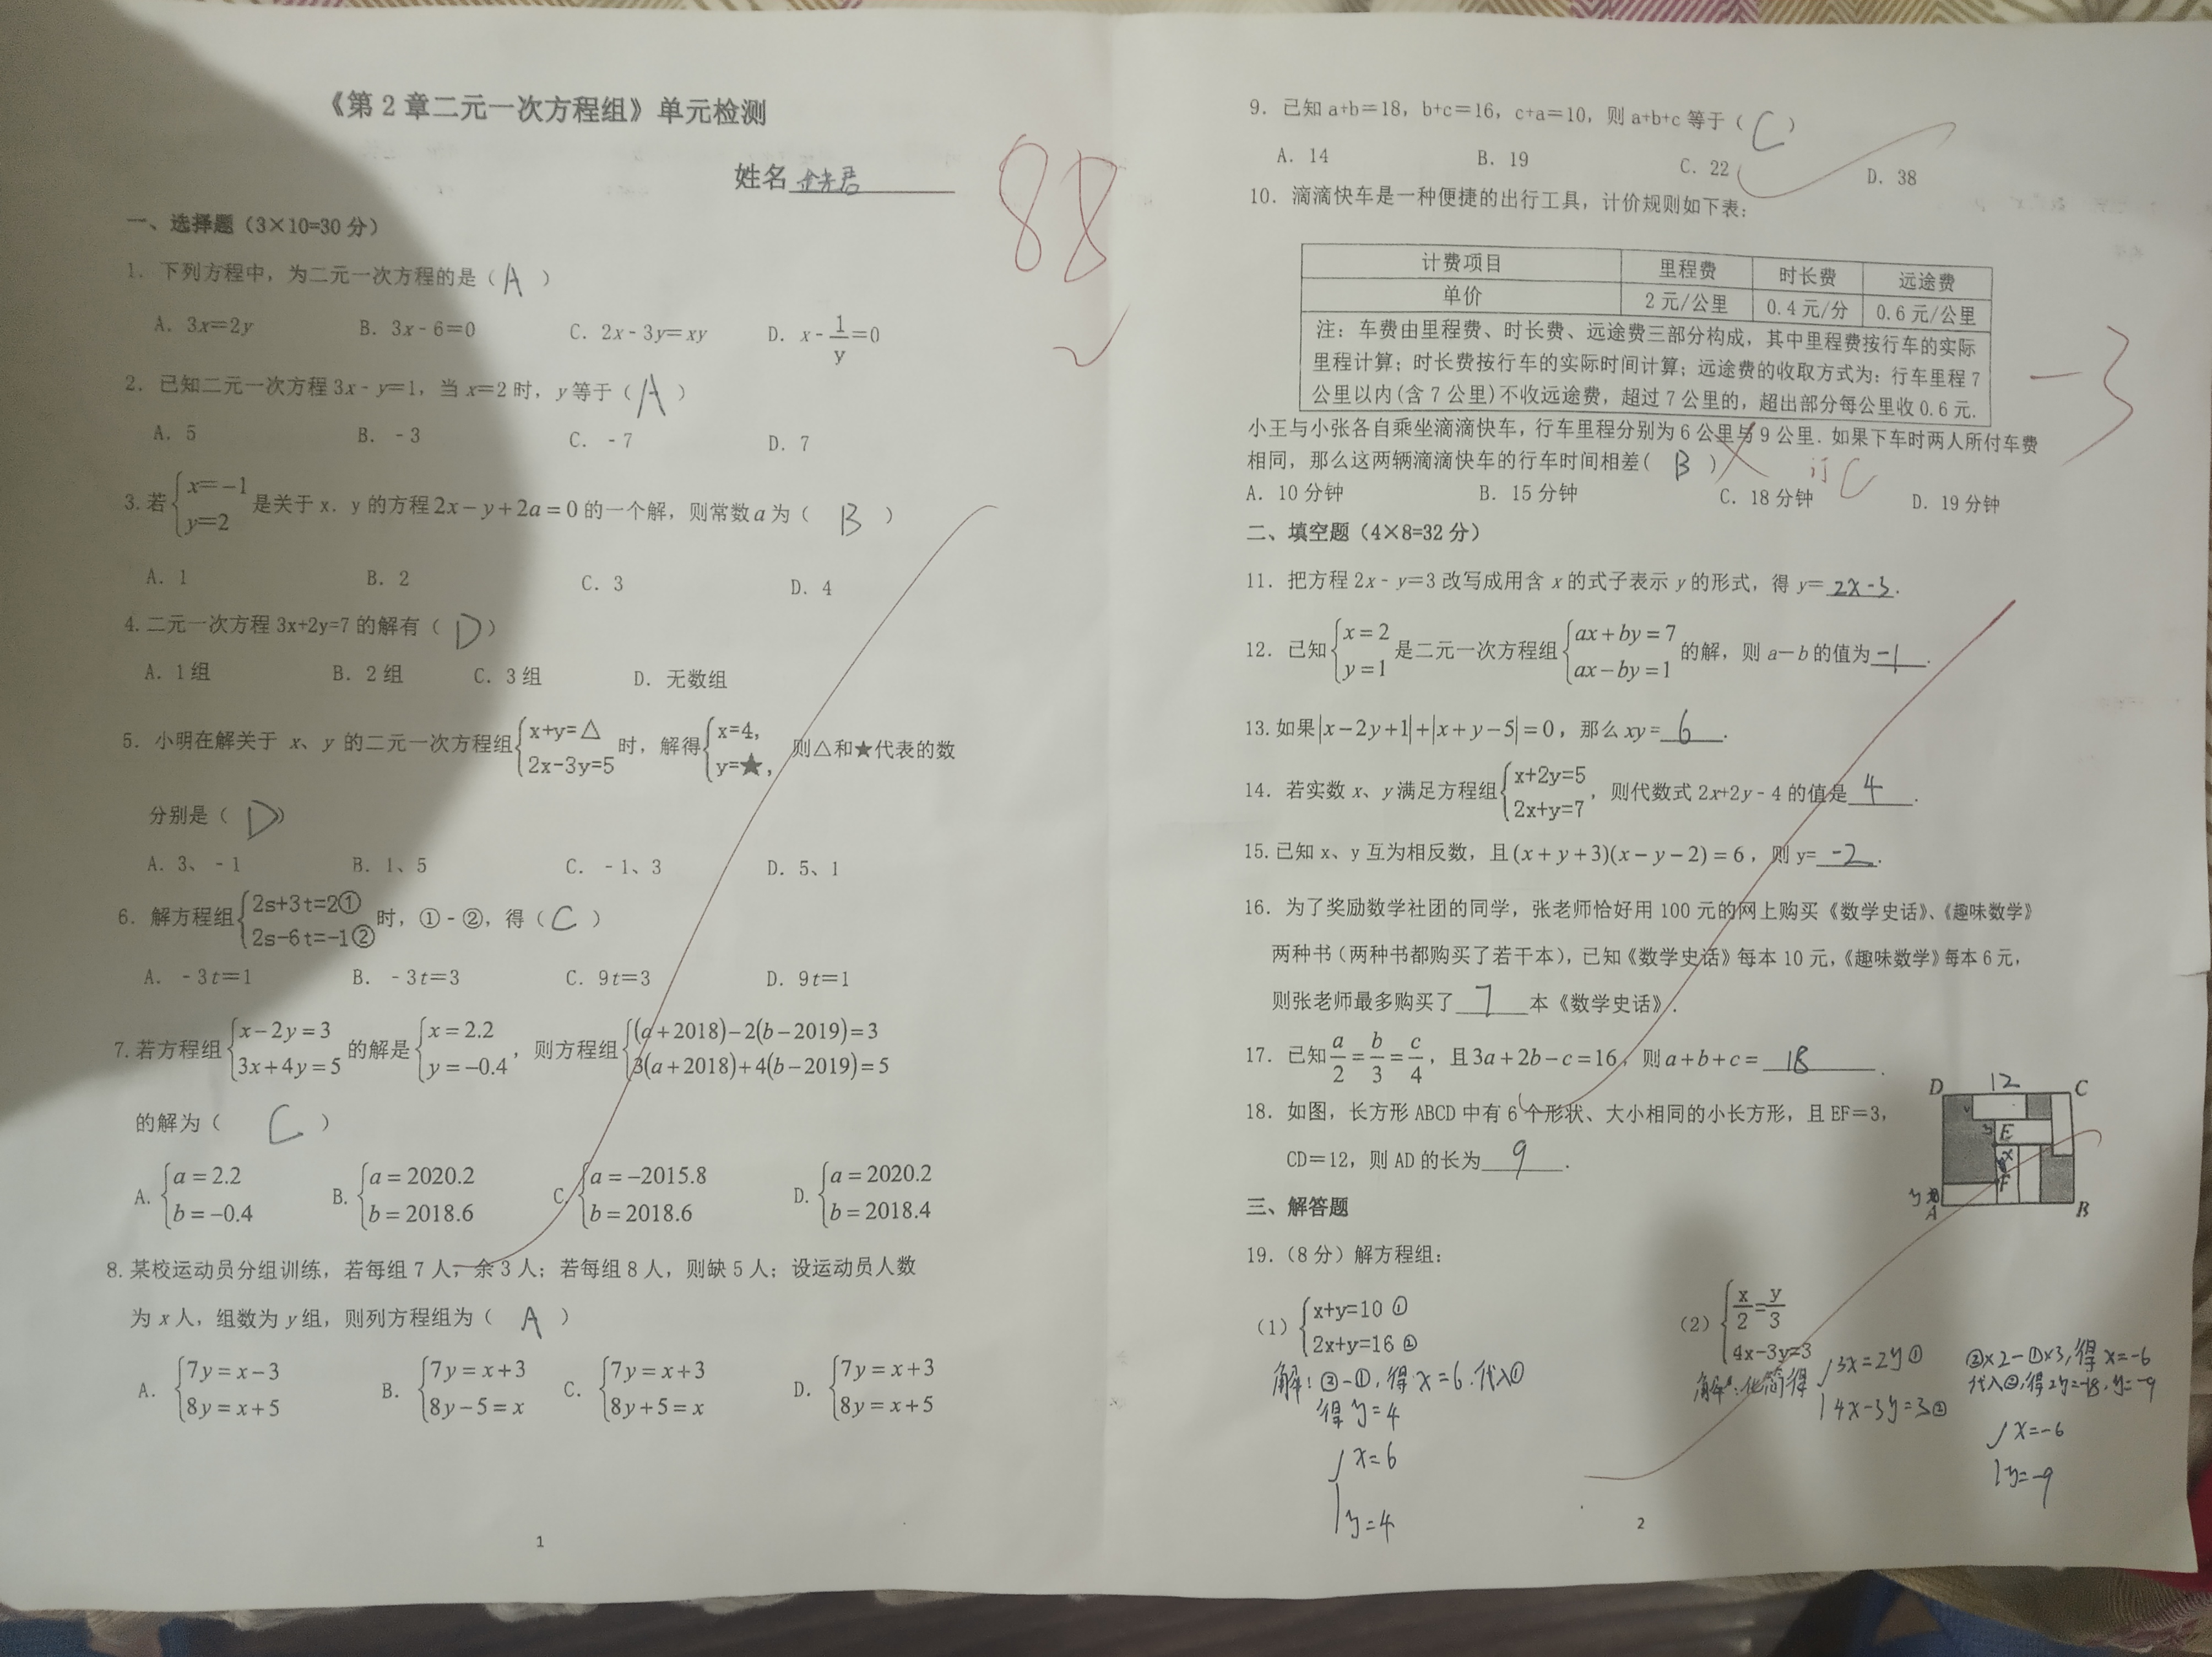 《第2章二元一次方程组》单元检测
姓名
88
一、选择题（3×10=30分）
1. 下列方程中，为二元一次方程的是（ A ）
A. 3x=2y B. 3x-6=0 C. 2x-3y=xy D. x-1/y=0
2. 已知二元一次方程3x-y=1，当x=2时，y等于（ A ）
A. 5 B. -3 C. -7 D. 7
3.若{x=-1 y=2 是关于x. y的方程2x-y+2a=0的一个解，则常数a为（ B ）
A. 1 B. 2 C. 3 D. 4
4.二元一次方程3x+2y=7的解有（ D ）
A. 1组 B. 2组 C. 3组 D. 无数组
5. 小明在解关于 x、y 的二元一次方程组{x+y=△ 2x-3y=5 时，解得{x=4, y=★, 则△和★代表的数
分别是（ D ）
A. 3、-1 B. 1、5 C. -1、3 D. 5、1
6. 解方程组{2s+3t=2① 2s-6t=-1② 时，①-②，得（ C ）
A. -3t=1 B. -3t=3 C. 9t=3 D. 9t=1
7.若方程组{x-2y=3 3x+4y=5 的解是{x=2.2 y=-0.4，则方程组{(a+2018)-2(b-2019)=3 3(a+2018)+4(b-2019)=5
的解为（ C ）
A. {a=2.2 b=-0.4 B. {a=2020.2 b=2018.6 C. {a=-2015.8 b=2018.6 D. {a=2020.2 b=2018.4
8.某校运动员分组训练，若每组7人，余3人；若每组8人，则缺5人；设运动员人数
为x人，组数为y组，则列方程组为（ A ）
A. {7y=x-3 8y=x+5 B. {7y=x+3 8y-5=x C. {7y=x+3 8y+5=x D. {7y=x+3 8y=x+5
1
9. 已知a+b=18，b+c=16，c+a=10，则a+b+c等于（ C ）
A. 14 B. 19 C. 22 D. 38
10. 滴滴快车是一种便捷的出行工具，计价规则如下表：
计费项目 里程费 时长费 远途费
单价 2元/公里 0.4元/分 0.6元/公里
注：车费由里程费、时长费、远途费三部分构成，其中里程费按行车的实际
里程计算；时长费按行车的实际时间计算；远途费的收取方式为：行车里程7
公里以内(含7公里)不收远途费，超过7公里的，超出部分每公里收0.6元.
-3
小王与小张各自乘坐滴滴快车，行车里程分别为6公里与9公里. 如果下车时两人所付车费
相同，那么这两辆滴滴快车的行车时间相差( B ) 订C
A. 10分钟 B. 15分钟 C. 18分钟 D. 19分钟
二、填空题（4×8=32分）
11. 把方程2x-y=3改写成用含x的式子表示y的形式，得y=2x-3.
12. 已知{x=2 y=1 是二元一次方程组{ax+by=7 ax-by=1 的解，则a-b的值为-1.
13.如果|x-2y+1|+|x+y-5|=0，那么xy=6.
14. 若实数x、y满足方程组{x+2y=5 2x+y=7，则代数式2x+2y-4的值是4.
15.已知x、y互为相反数，且(x+y+3)(x-y-2)=6，则y=-2.
16. 为了奖励数学社团的同学，张老师恰好用100元的网上购买《数学史话》、《趣味数学》
两种书（两种书都购买了若干本），已知《数学史话》每本10元，《趣味数学》每本6元，
则张老师最多购买了7本《数学史话》.
17. 已知a/2=b/3=c/4，且3a+2b-c=16，则a+b+c=18.
18. 如图，长方形ABCD中有6个形状、大小相同的小长方形，且EF=3，
CD=12，则AD的长为9.
D 12 C
3 E
x
F
y
A B
三、解答题
19.（8分）解方程组：
（1）{x+y=10 ① 2x+y=16 ②
解：②-①，得x=6. 代入①
得y=4
{x=6
y=4
（2）{x/2=y/3 4x-3y=3
解：化简得{3x=2y① 4x-3y=3②
②×2-①×3，得x=-6
代入②，得2y=-18，y=-9
{x=-6
y=-9
2